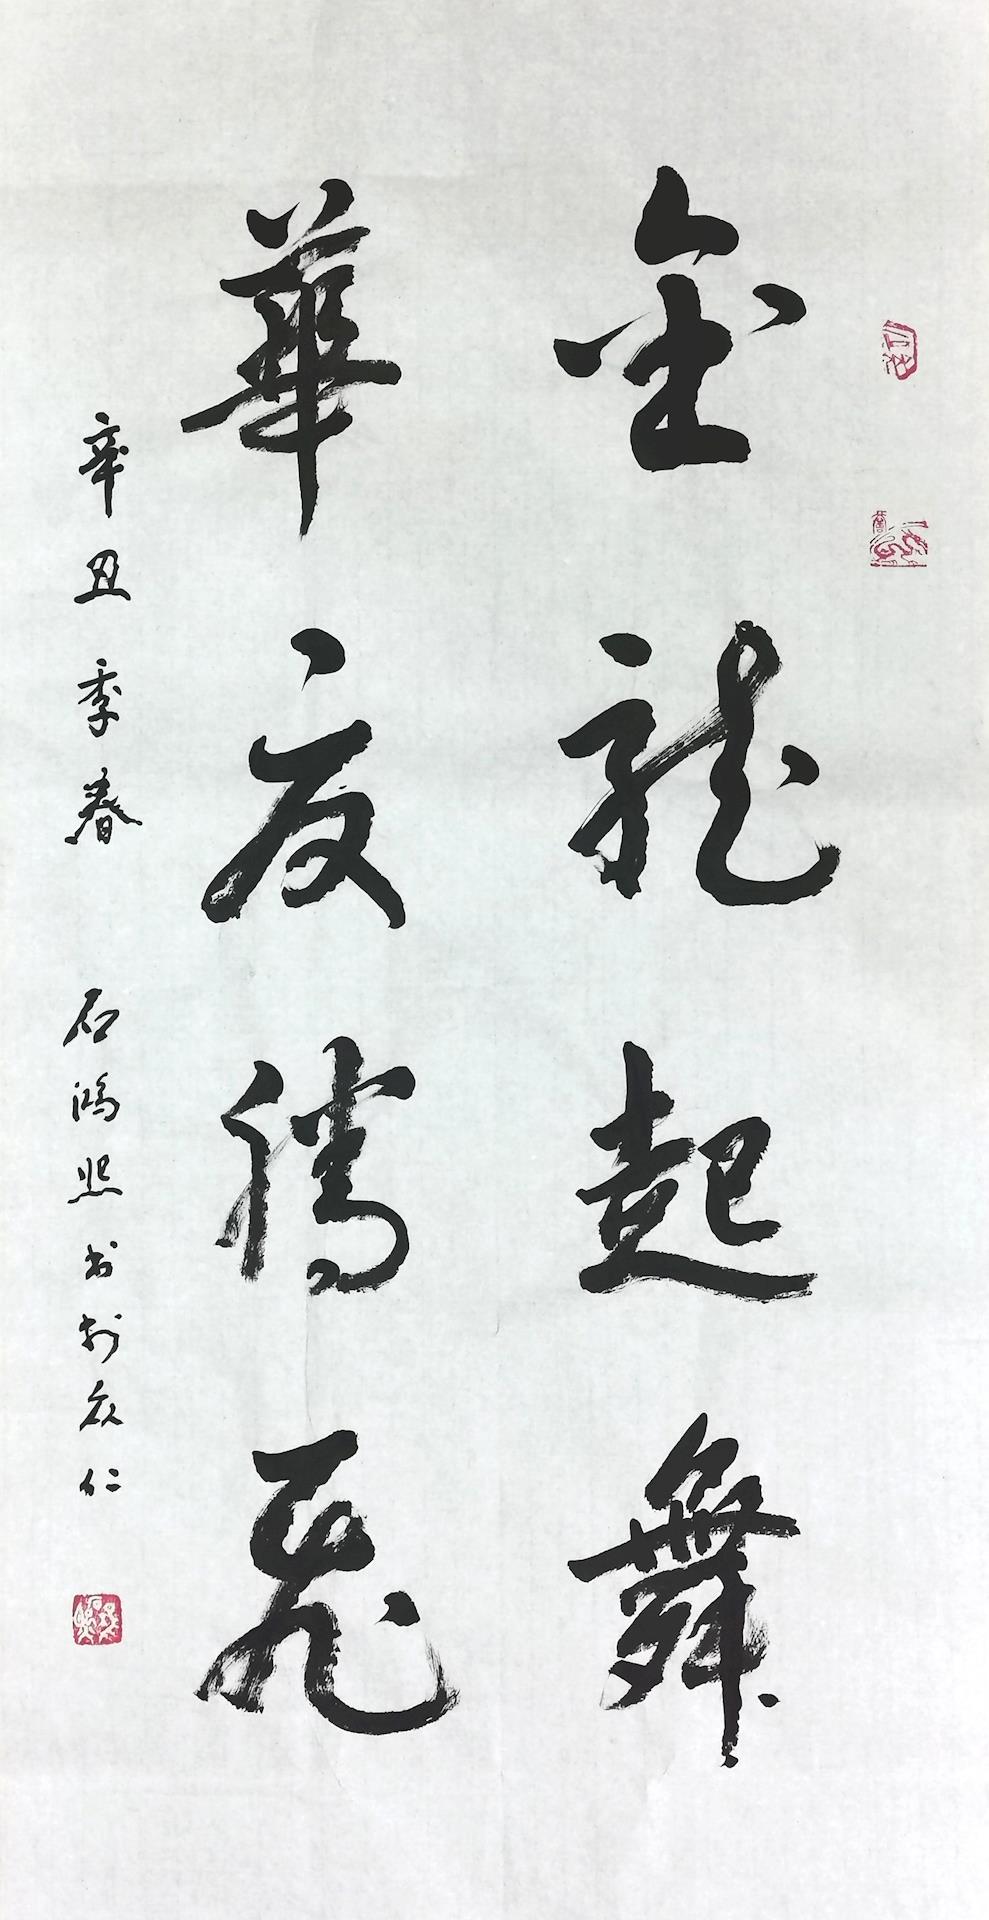 金龍起舞
華夏騰飛
辛丑季春 石鴻熙书於众仁